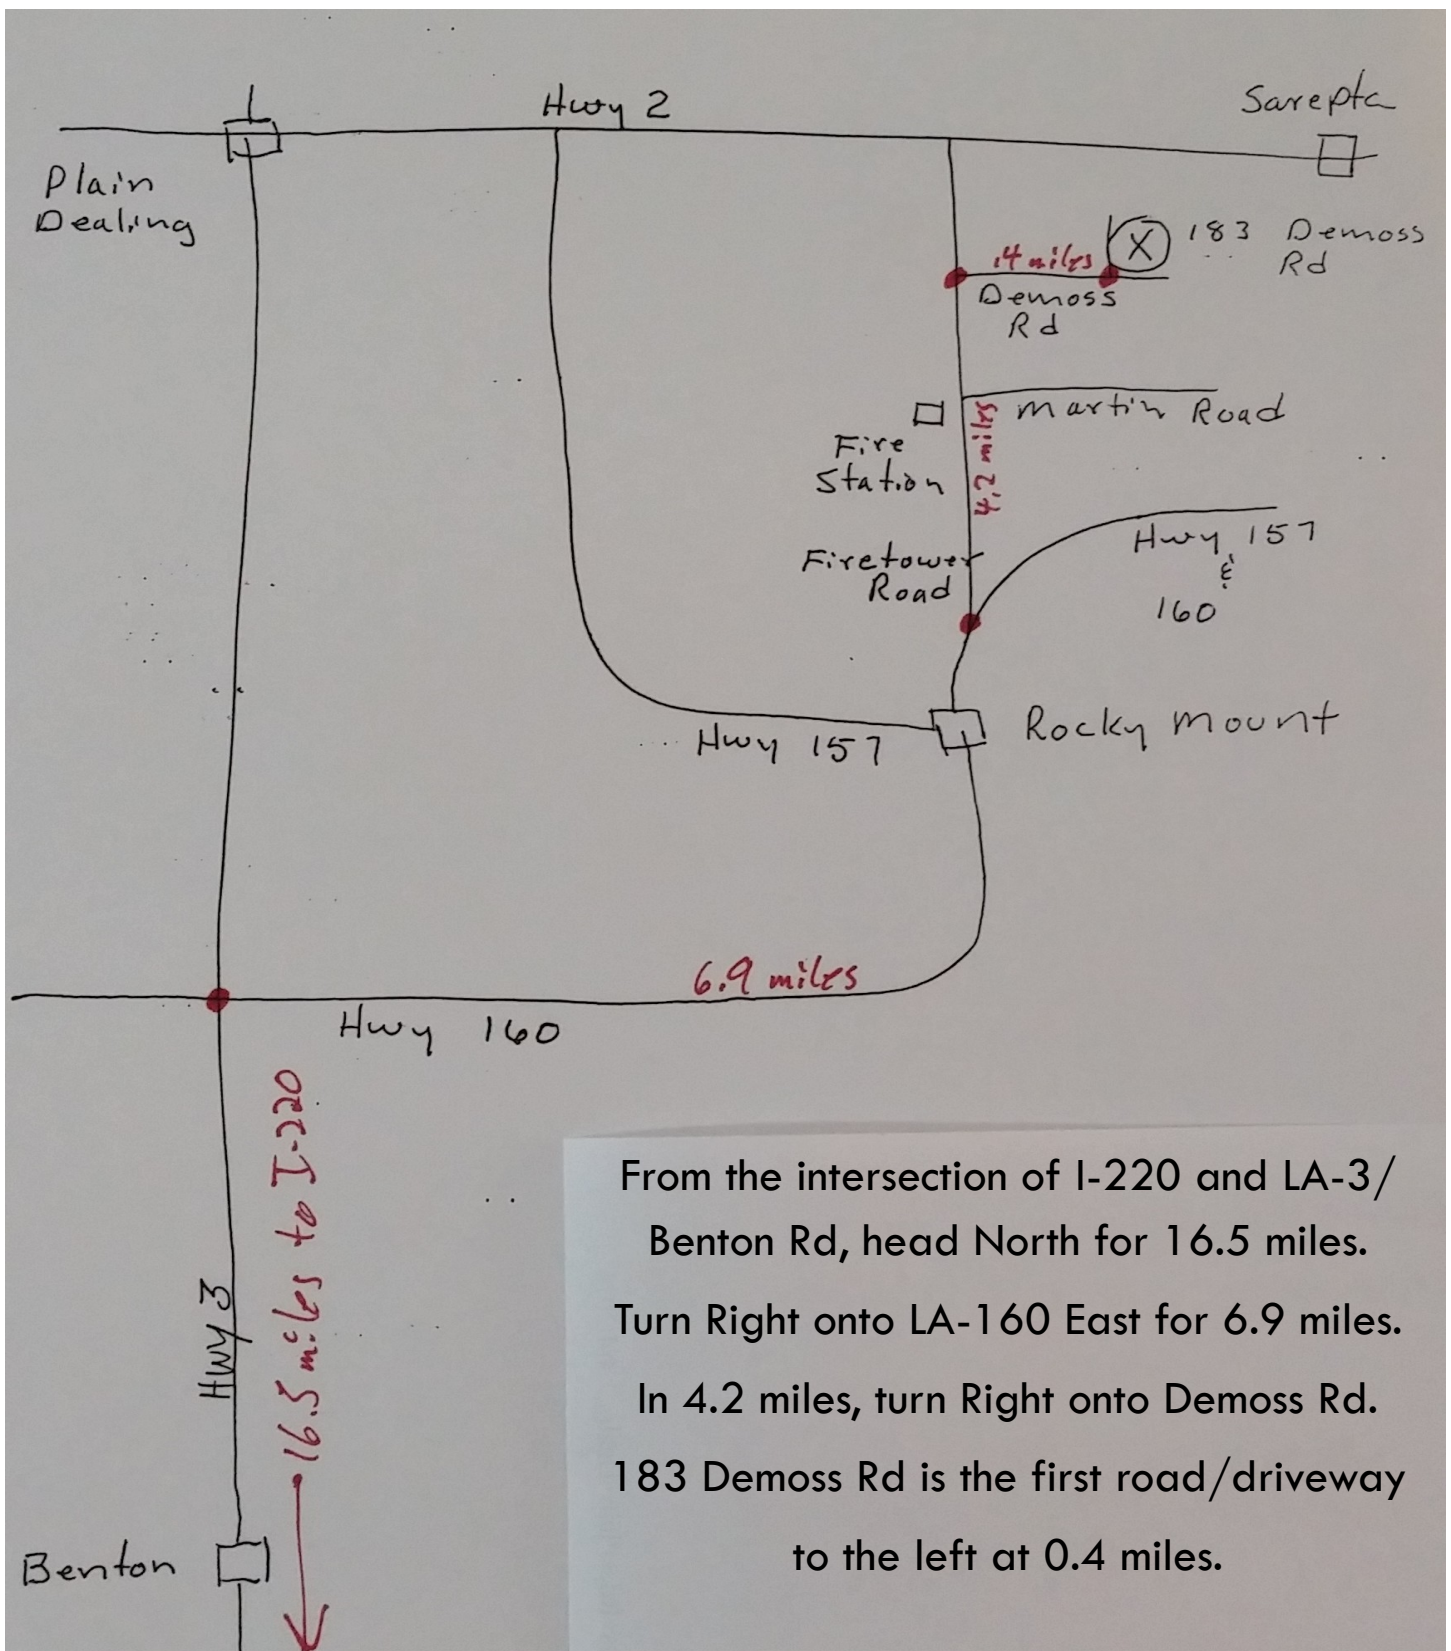 Hwy 2
Sarepta
Plain
Dealing
.4 miles
183 Demoss
Rd
Demoss
Rd
Martin Road
4.2 miles
Fire
Station
Firetower
Road
Hwy 157
&
160
Rocky Mount
Hwy 157
6.9 miles
Hwy 160
16.5 miles to I-220
HWY 3
Benton
From the intersection of I-220 and LA-3/
Benton Rd, head North for 16.5 miles.
Turn Right onto LA-160 East for 6.9 miles.
In 4.2 miles, turn Right onto Demoss Rd.
183 Demoss Rd is the first road/driveway
to the left at 0.4 miles.